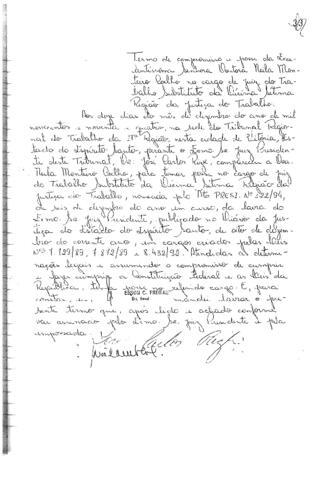 29
Termo de compromisso e posse da Exce-
lentíssima Senhora Doutora Maila Mon-
teiro Coelho no cargo de juiz do Tra-
balho Substituto da Décima Sétima
Região da Justiça do Trabalho.
Aos doze dias do mês de dezembro do ano de mil
novecentos e noventa e quatro, na sede do Tribunal Regio-
nal do Trabalho da 17ª Região, nesta cidade de Vitória, Es-
tado do Espírito Santo, perante o Exmo Sr. Juiz Presiden-
te deste Tribunal, Dr. José Carlos Rizk, compareceu a Dra.
Maila Monteiro Coelho, para tomar posse no cargo de juiz
do Trabalho Substituto da Décima Sétima Região da
Justiça do Trabalho, nomeada pelo Ato PRESI. Nº 122/94,
de seis de dezembro do ano em curso, da lavra do
Exmo. Sr. Juiz Presidente, publicado no Diário da Jus-
tiça do Estado do Espírito Santo, de oito de dezem-
bro do corrente ano, em cargos criados pelas Leis
Nºs 7.729/89, 7.872/89 e 8.432/92. Atendidas as determi-
nações legais e assumindo o compromisso de cumprir
e fazer cumprir a Constituição Federal e as leis da
República, toma posse no referido cargo. E, para
constar, mandei lavrar o pre-
sente termo que, após lido e achado conforme
vai assinado pelo Exmo. Sr. Juiz Presidente e pela
empossada.